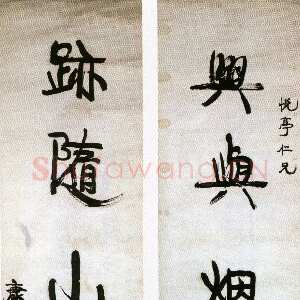 悅亭仁兄
興與烟
跡隨山
康